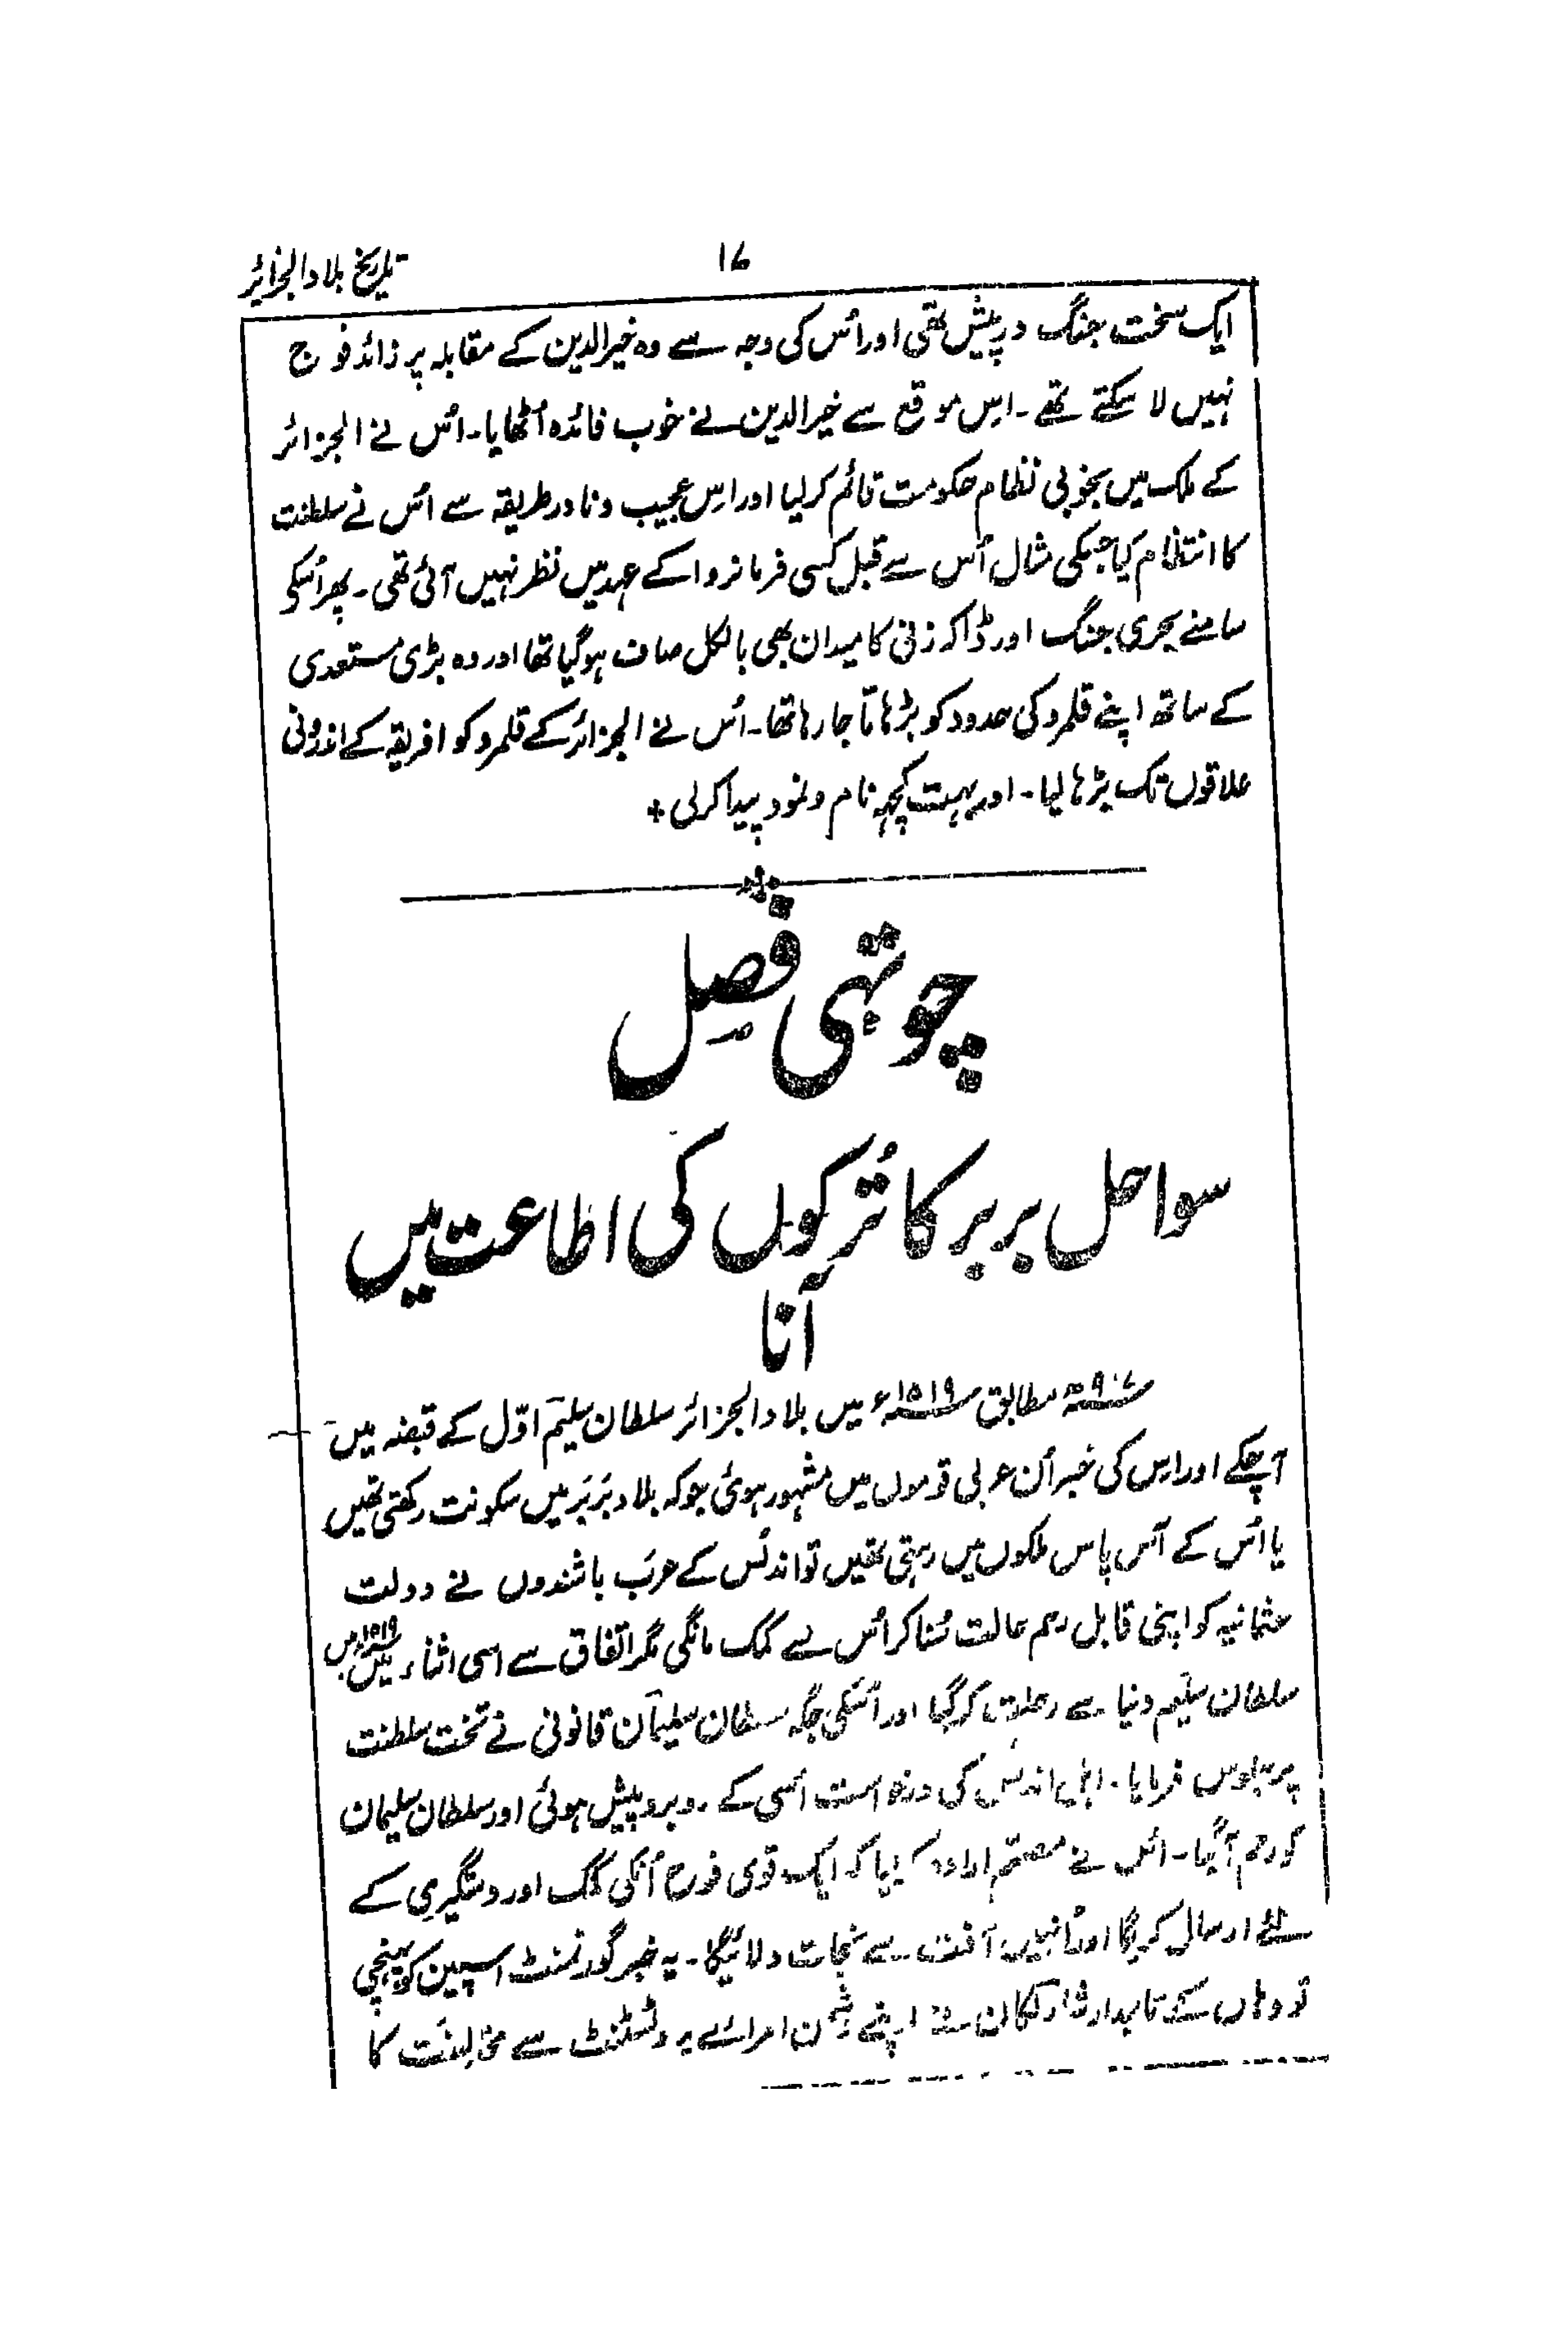 تاریخ بلاد الجزائر
۱۶
ایک سخت جنگ درپیش تھی اور اُس کی وجہ سے وہ خیرالدین کے مقابلہ پر زائد فوج
نہیں لا سکتے تھے ۔ اِس موقع سے خیرالدین نے خوب فائدہ اُٹھایا ۔ اُس نے الجزائر
کے ملک میں بخوبی نظام حکومت قائم کر لیا اور اِس عجیب و نادر طریقہ سے اُس نے سلطنت
کا انتظام کیا جسکی مثال اُس سے قبل کسی فرمانروا کے عہد میں نظر نہیں آئی تھی ۔ پھر اُسکی
سامنے بحری جنگ اور ڈاکہ زنی کا میدان بھی بالکل صاف ہوگیا تھا اور وہ بڑی مستعدی
کے ساتھ اپنے قلمرو کی حدود کو بڑہاتا جا رہا تھا ۔ اُس نے الجزائر کے قلمرو کو افریقہ کے اندرونی
علاقوں تک بڑہا لیا ۔ اور بہت کچہہ نام و نمود پیدا کرلی +
چوتہی فصل
سواحل بربر کا تُرکوں کی اطاعت میں
آنا
مطابق ۱۵۱۹ء میں بلاد الجزائر سلطان سلیم اوّل کے قبضہ میں
آچکے اور اِس کی خبر اُن عربی قوموں میں مشہور ہوئی جو کہ بلاد بَربَر میں سکونت رکھتی تھیں
یا اُس کے آس پاس ملکوں میں رہتی تھیں تو اندلس کے عرب باشندوں نے دولت
عثمانیہ کو اپنی قابل رحم حالت سُنا کر اُس سے کمک مانگی مگر اتفاق سے اسی اثناء میں ۱۵۱۹ء میں
سلطان سلیم دنیا سے رحلت کر گیا اور اُسکی جگہ سلطان سلیمان قانونی نے تخت سلطنت
پر جلوس فرمایا ۔ اہل اندلس کی درخواست اُسی کے روبرو پیش ہوئی اور سلطان سلیمان
کو رحم آگیا ۔ اُس نے مصمّم ارادہ کر لیا کہ ایک قوی فوج اُنکی کمک اور دستگیری کے
لئے ارسال کریگا اور اُنہیں آفت سے نجات دلائیگا ۔ یہ خبر گورنمنٹ اسپین کو پہنچی
تو وہاں کے تاجدار شارلکان نے اپنے دشمن امرائے پروٹسٹنٹ سے مخالفت کا